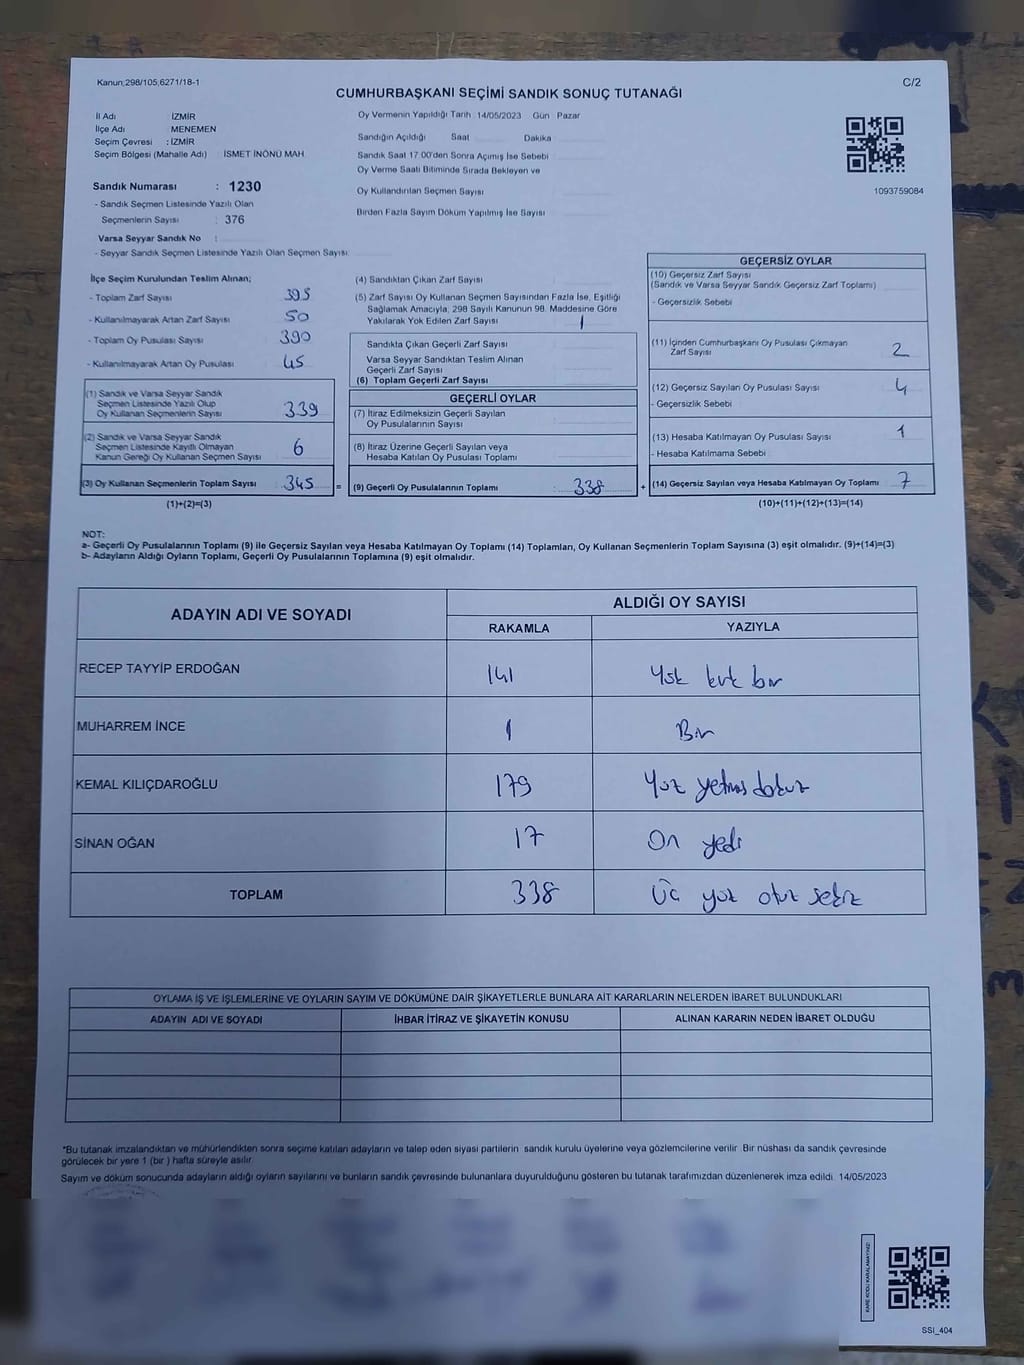 Kanun;298/105,6271/18-1
C/2
CUMHURBAŞKANI SEÇİMİ SANDIK SONUÇ TUTANAĞI
İl Adı İZMİR
İlçe Adı MENEMEN
Seçim Çevresi : İZMİR
Seçim Bölgesi (Mahalle Adı) : İSMET İNÖNÜ MAH
Oy Vermenin Yapıldığı Tarih 14/05/2023 Gün Pazar
Sandığın Açıldığı Saat Dakika
Sandık Saat 17.00'den Sonra Açımış İse Sebebi
Oy Verme Saati Bitiminde Sırada Bekleyen ve
Oy Kullandırılan Seçmen Sayısı
Birden Fazla Sayım Döküm Yapılmış İse Sayısı
1093759084
Sandık Numarası : 1230
- Sandık Seçmen Listesinde Yazılı Olan
Seçmenlerin Sayısı : 376
Varsa Seyyar Sandık No :
- Seyyar Sandık Seçmen Listesinde Yazılı Olan Seçmen Sayısı
İlçe Seçim Kurulundan Teslim Alınan;
- Toplam Zarf Sayısı 395
- Kullanılmayarak Artan Zarf Sayısı 50
- Toplam Oy Pusulası Sayısı 390
- Kullanılmayarak Artan Oy Pusulası 45
(1) Sandık ve Varsa Seyyar Sandık
Seçmen Listesinde Yazılı Olup
Oy Kullanan Seçmenlerin Sayısı 339
(2) Sandık ve Varsa Seyyar Sandık
Seçmen Listesinde Kayıtlı Olmayan
Kanun Gereği Oy Kullanan Seçmen Sayısı 6
(3) Oy Kullanan Seçmenlerin Toplam Sayısı 345 =
(1)+(2)=(3)
(4) Sandıktan Çıkan Zarf Sayısı
(5) Zarf Sayısı Oy Kullanan Seçmen Sayısından Fazla İse, Eşitliği
Sağlamak Amacıyla; 298 Sayılı Kanunun 98. Maddesine Göre
Yakılarak Yok Edilen Zarf Sayısı 1
Sandıkta Çıkan Geçerli Zarf Sayısı
Varsa Seyyar Sandıktan Teslim Alınan
Geçerli Zarf Sayısı
(6) Toplam Geçerli Zarf Sayısı
GEÇERLİ OYLAR
(7) İtiraz Edilmeksizin Geçerli Sayılan
Oy Pusulalarının Sayısı
(8) İtiraz Üzerine Geçerli Sayılan veya
Hesaba Katılan Oy Pusulası Toplamı
(9) Geçerli Oy Pusulalarının Toplamı : 338 +
GEÇERSİZ OYLAR
(10) Geçersiz Zarf Sayısı
(Sandık ve Varsa Seyyar Sandık Geçersiz Zarf Toplamı)
- Geçersizlik Sebebi
(11) İçinden Cumhurbaşkanı Oy Pusulası Çıkmayan
Zarf Sayısı 2
(12) Geçersiz Sayılan Oy Pusulası Sayısı 4
- Geçersizlik Sebebi
(13) Hesaba Katılmayan Oy Pusulası Sayısı 1
- Hesaba Katılmama Sebebi
(14) Geçersiz Sayılan veya Hesaba Katılmayan Oy Toplamı 7
(10)+(11)+(12)+(13)=(14)
NOT:
a- Geçerli Oy Pusulalarının Toplamı (9) ile Geçersiz Sayılan veya Hesaba Katılmayan Oy Toplamı (14) Toplamları, Oy Kullanan Seçmenlerin Toplam Sayısına (3) eşit olmalıdır. (9)+(14)=(3)
b- Adayların Aldığı Oyların Toplamı, Geçerli Oy Pusulalarının Toplamına (9) eşit olmalıdır.
ADAYIN ADI VE SOYADI ALDIĞI OY SAYISI
RAKAMLA YAZIYLA
RECEP TAYYİP ERDOĞAN 141 Yüz kırk bir
MUHARREM İNCE 1 Bir
KEMAL KILIÇDAROĞLU 179 Yüz yetmiş dokuz
SİNAN OĞAN 17 On yedi
TOPLAM 338 Üç yüz otuz sekiz
OYLAMA İŞ VE İŞLEMLERİNE VE OYLARIN SAYIM VE DÖKÜMÜNE DAİR ŞİKAYETLERLE BUNLARA AİT KARARLARIN NELERDEN İBARET BULUNDUKLARI
ADAYIN ADI VE SOYADI İHBAR İTİRAZ VE ŞİKAYETİN KONUSU ALINAN KARARIN NEDEN İBARET OLDUĞU
*Bu tutanak imzalandıktan ve mühürlendikten sonra seçime katılan adayların ve talep eden siyasi partilerin sandık kurulu üyelerine veya gözlemcilerine verilir. Bir nüshası da sandık çevresinde
görülecek bir yere 1 (bir ) hafta süreyle asılır.
Sayım ve döküm sonucunda adayların aldığı oyların sayılarını ve bunların sandık çevresinde bulunanlara duyurulduğunu gösteren bu tutanak tarafımızdan düzenlenerek imza edildi. 14/05/2023
KARE KODU KARALAMAYINIZ!
SSI_404